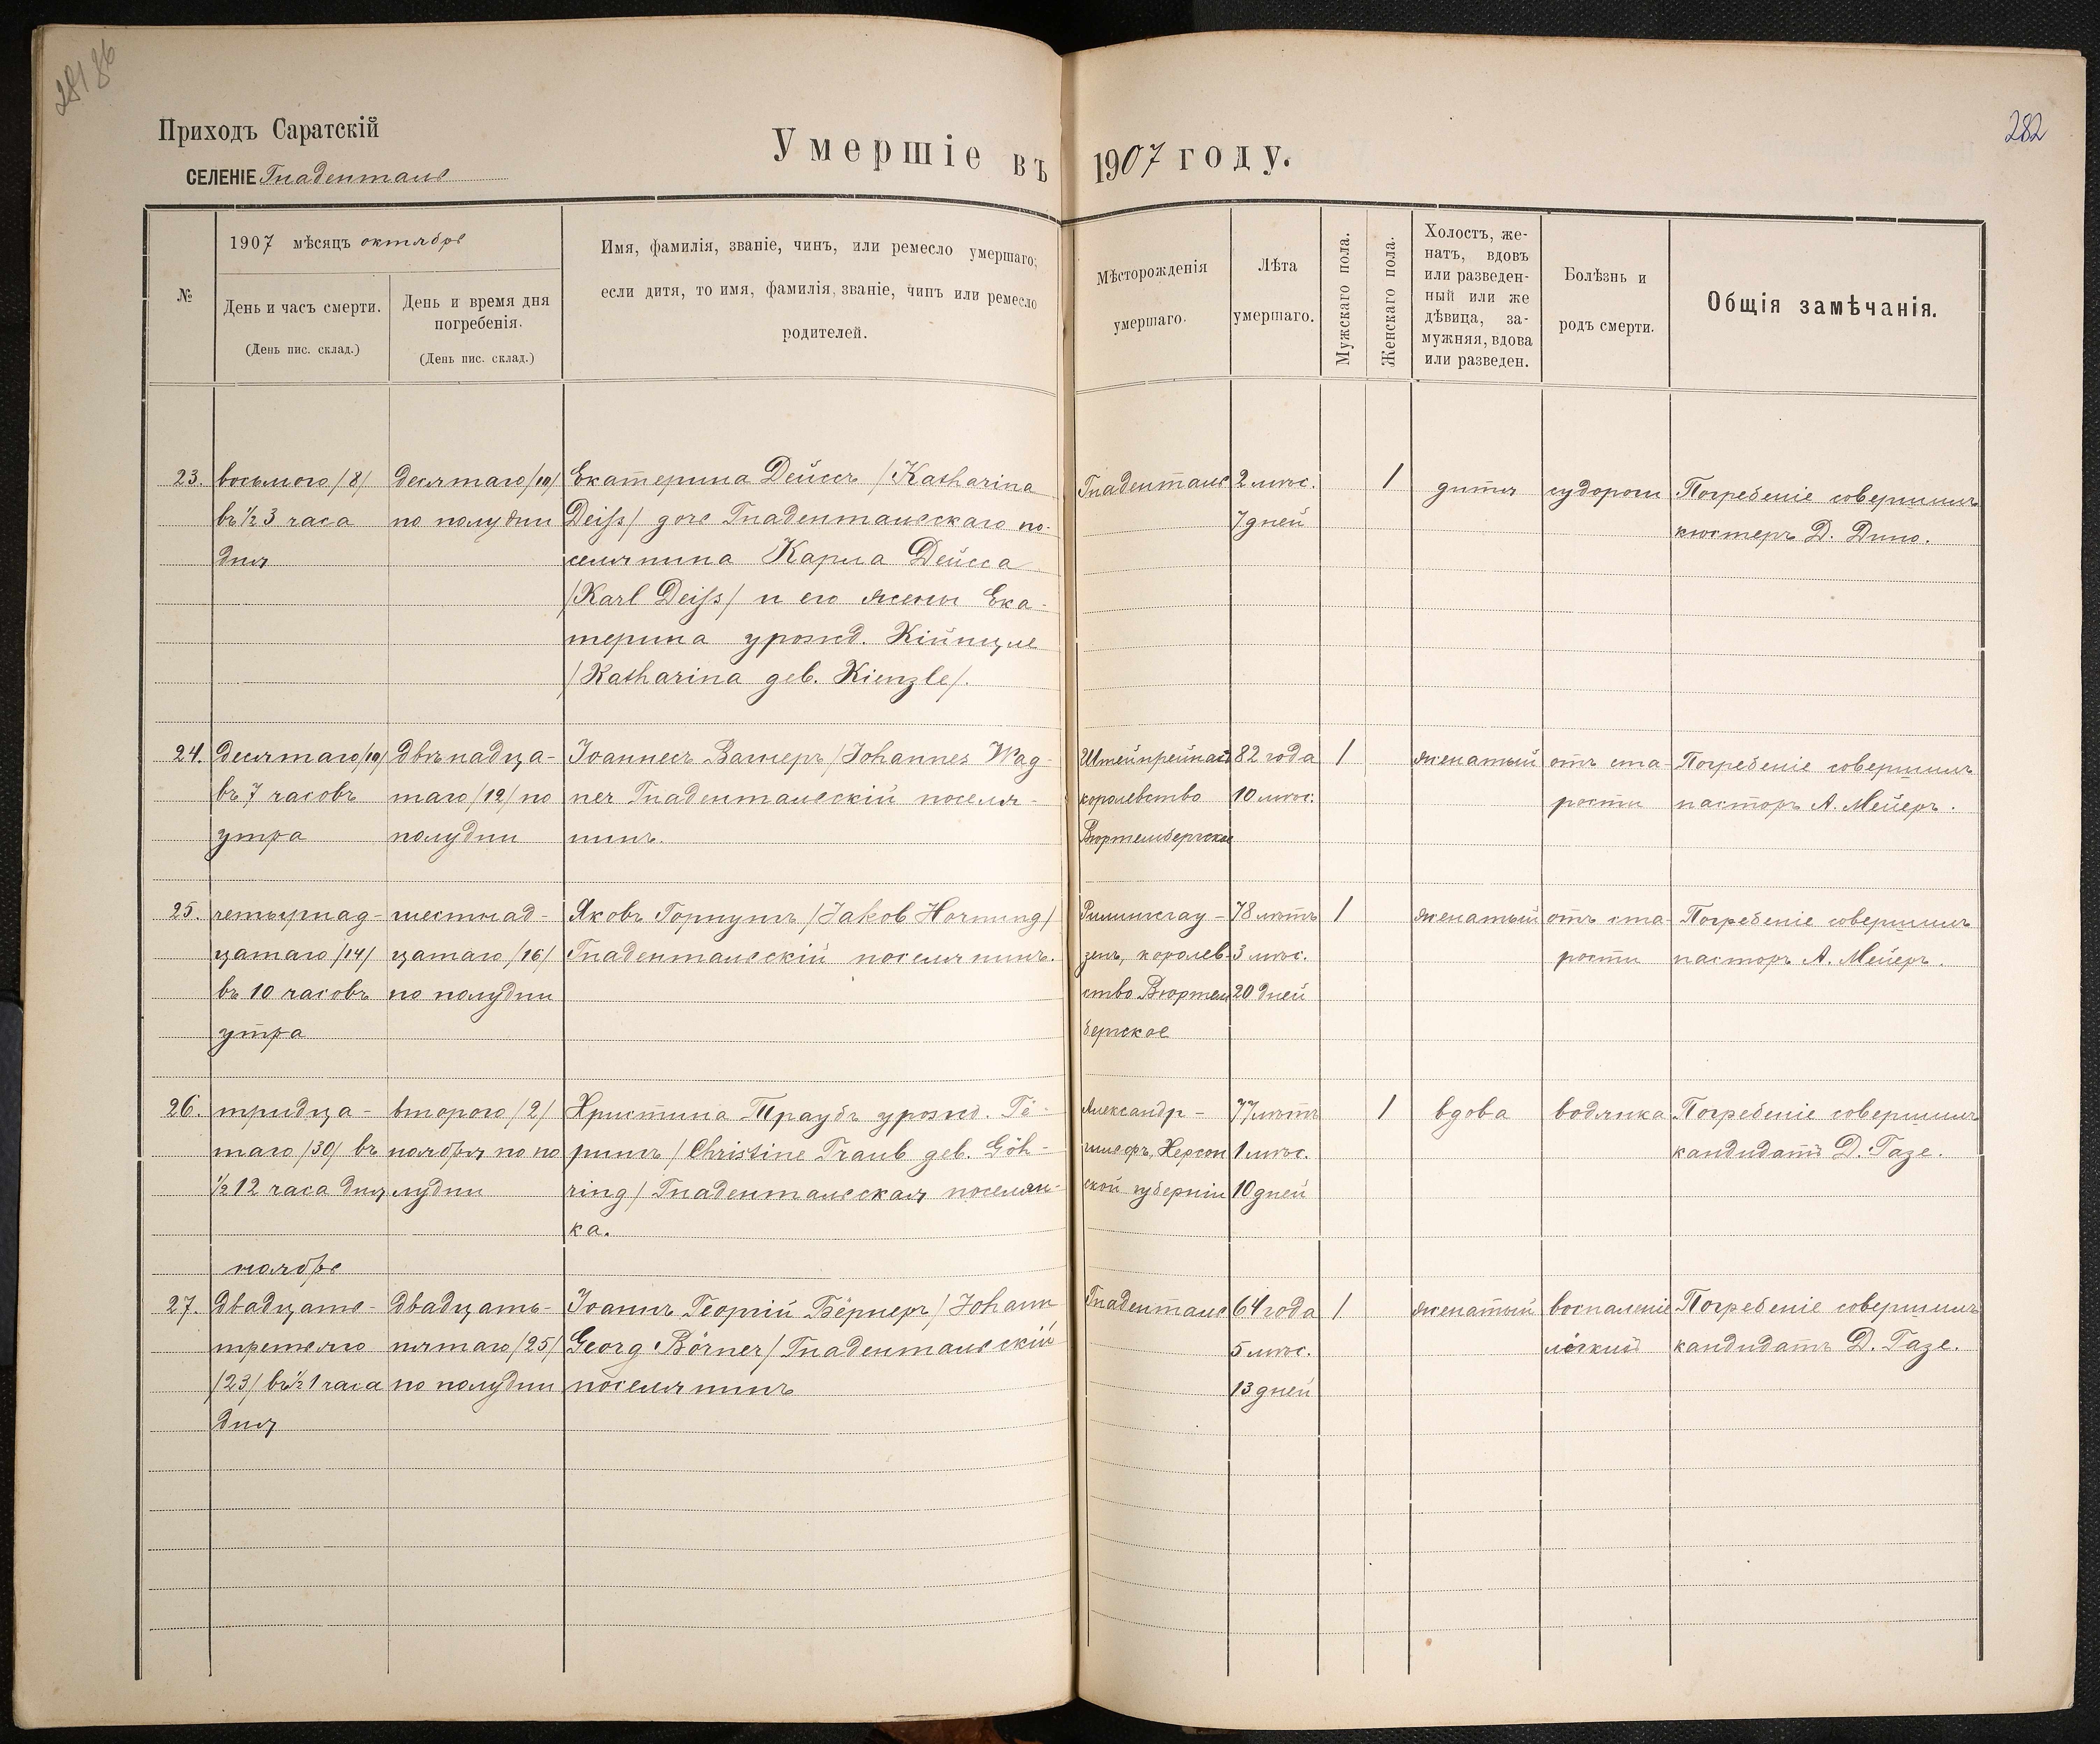 282
Приходъ Саратскій
СЕЛЕНІЕ Гнаденталь
Умершіе въ 1907 году.
№
1907 мѣсяцъ октябрь
День и часъ смерти.
(День пис. склад.)
День и время дня
погребенія.
(День пис. склад.)
Имя, фамилія, званіе, чинъ, или ремесло умершаго;
если дитя, то имя, фамилія, званіе, чинъ или ремесло
родителей.
Мѣсторожденія
умершаго.
Лѣта
умершаго.
Мужскаго пола.
Женскаго пола.
Холостъ, же-
натъ, вдовъ
или разведен-
ный или же
дѣвица, за-
мужняя, вдова
или разведен.
Болѣзнь и
родъ смерти.
Общія замѣчанія.
23. восьмого /8/ десятаго /10/ Екатерина Дейссъ /Katharina Гнаденталь 2 мѣс. 1 дитя судороги Погребеніе совершилъ
въ ½ 3 часа по полудни Deiß/ дочь Гнадентальскаго по- 7 дней кюстеръ Д. Дино.
дня селянина Карла Дейсса
/Karl Deiß/ и его жены Ека-
терина урожд. Кійнцле
/Katharina geb. Kienzle/.
24. десятаго /10/ двѣнадца- Іоаннесъ Вагнеръ /Johannes Wag- 82 года 1 женатый отъ ста- Погребеніе совершилъ
въ 7 часовъ таго /12/ по ner Гнадентальскій поселя- королевство 10 мѣс. рости пасторъ А. Мейеръ.
утра полудни нинъ. Вюртембергское
25. четырнад- шестнад- Яковъ Горнунгъ /Jakob Hornung/ 78 лѣтъ 1 женатый отъ ста- Погребеніе совершилъ
цатаго /14/ цатаго /16/ Гнадентальскій поселянинъ. зенъ, королев- 3 мѣс. рости пасторъ А. Мейеръ.
въ 10 часовъ по полудни ство Вюртем 20 дней
утра бергское
26. тридца- второго /2/ Христина Траубъ урожд. Гё- Александр- 77 лѣтъ 1 вдова водянка Погребеніе совершилъ
таго /30/ въ ноября по по рингъ /Christine Traub geb. Göh- гильфъ, Херсон 1 мѣс. кандидатъ Д. Газе.
½ 12 часа дня лудни ring/ Гнадентальская поселян- ской губерніи 10 дней
ка.
ноябрь
27. двадцать- двадцать- Іоаннъ Георгій Бёрнеръ /Johann Гнаденталь 64 года 1 женатый воспаленіе Погребеніе совершилъ
третьяго пятаго /25/ Georg Börner/ Гнадентальскій 5 мѣс. лёгкихъ кандидатъ Д. Газе.
/23/ въ ½ 1 часа по полудни поселянинъ 13 дней
дня